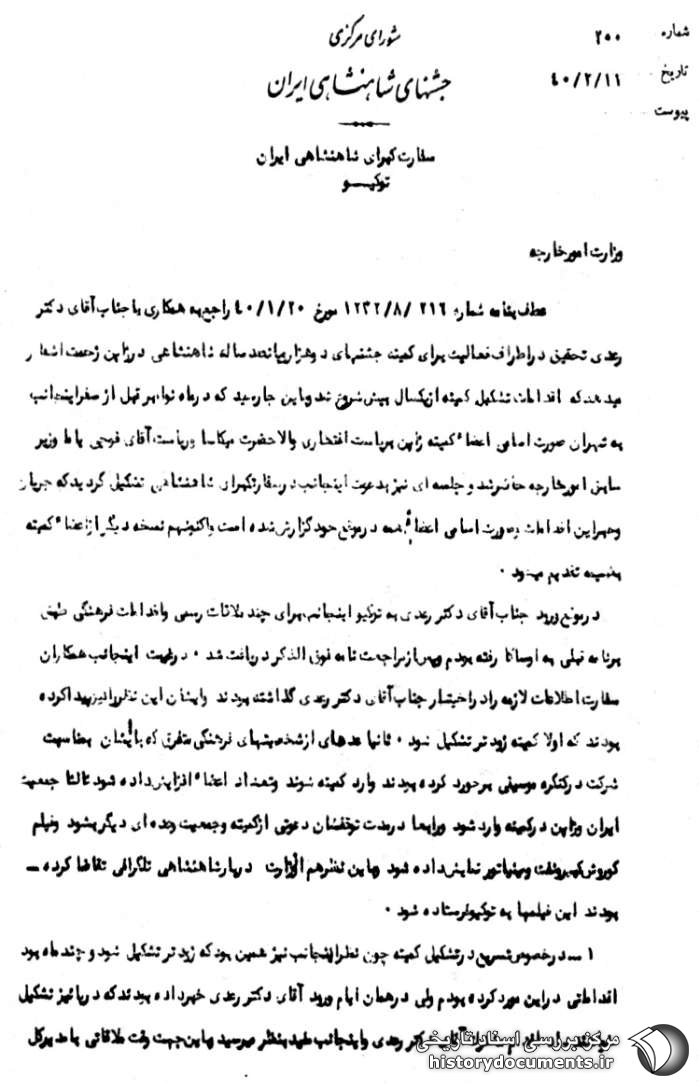 شماره ۲۰۰
تاریخ ۴۰/۲/۱۱
پیوست
شورای مرکزی
جشنهای شاهنشاهی ایران
سفارت کبرای شاهنشاهی ایران
توکیو
وزارت امور خارجه
عطف بنامه شماره ۲۱۶ /۱۲۴۲/۸ مورخ ۴۰/۱/۲۰ راجع به همکاری با جناب آقای دکتر
رعدی تحقیق در اطراف فعالیت برای کمیته جشنهای دوهزار و پانصد ساله شاهنشاهی در ژاپن زحمت اشعار
میدهد که اقدامات تشکیل کمیته از یکسال پیش شروع شد و باین جا رسید که در ماه نوامبر قبل از سفر اینجانب
به تهران صورت اسامی اعضاء کمیته ژاپن بریاست افتخاری والاحضرت میکاسا و ریاست آقای فوجی یاما وزیر
سابق امور خارجه حاضر شد و جلسه ای نیز بدعوت اینجانب در سفارت کبرای شاهنشاهی تشکیل گردید که جریان
این اقدامات وصورت اسامی اعضاء همه در موقع خود گزارش شده است و اکنون هم نسخه دیگر از اعضاء کمیته
بضمیمه تقدیم میشود ۰
در موقع ورود جناب آقای دکتر رعدی به توکیو اینجانب برای چند ملاقات رسمی واقدامات فرهنگی طبق
برنامه قبلی به اوساکا رفته بودم وپس از مراجعت نامه فوق الذکر دریافت شد ۰ در غیبت اینجانب همکاران
سفارت اطلاعات لازمه را در اختیار جناب آقای دکتر رعدی گذاشته بودند وایشان این نظر را نیز پیدا کرده
بودند که اولا کمیته زودتر تشکیل شود ۰ ثانیا عده‌ای از شخصیتهای فرهنگی متفرق که با ایشان بمناسبت
شرکت در کنگره موسیقی برخورد کرده بودند وارد کمیته شوند وتعداد اعضاء افزایش داده شود ثالثا جمعیت
ایران وژاپن در کمیته وارد شود ورابعا در مدت توقفشان دعوتی از کمیته وجمعیت وعده ای دیگر بشود وفیلم
کوروش کبیر و تخت ومینیاتور نمایش داده شود وباین نظر هم از وزارت دربار شاهنشاهی تلگرافی تقاضا کرده ــ
بودند این فیلمها به توکیو فرستاده شود ۰
۱ ــ در خصوص تسریع در تشکیل کمیته چون نظر اینجانب نیز همین بود که زودتر تشکیل شود و چند ماه بود
اقداماتی در این مورد کرده بودم ولی در همان ایام ورود آقای دکتر رعدی خبر داده بودند که در پائیز تشکیل
آقای دکتر رعدی واینجانب مفید بنظر میرسید وباین جهت وقت ملاقاتی با مدیرکل
مرکز بررسی اسناد تاریخی
historydocuments.ir